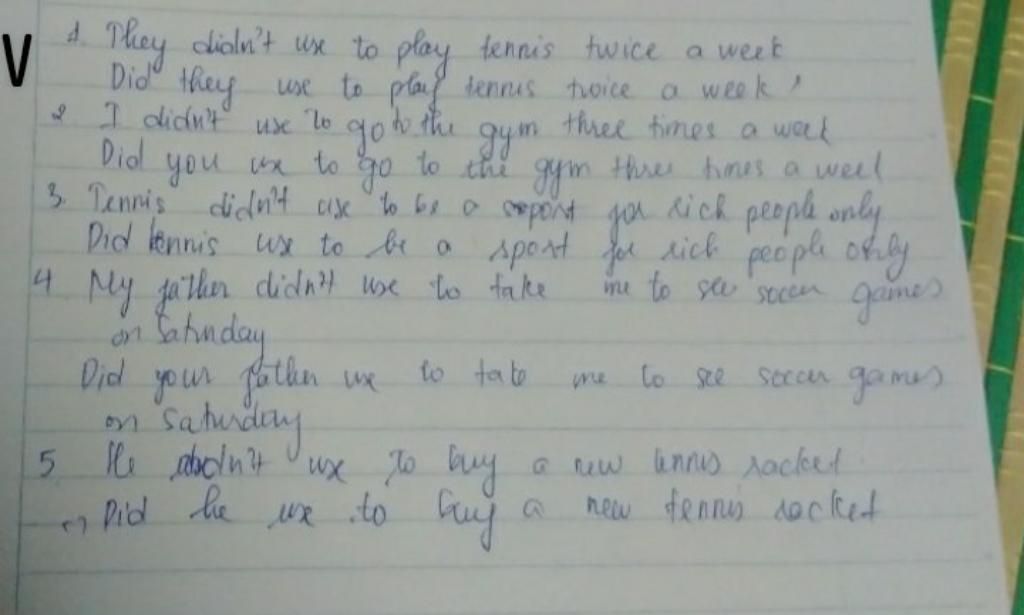 V
1. They didn't use to play tennis twice a week
Did they use to play tennis twice a week
2 I didn't use to go to the gym three times a week
Did you use to go to the gym three times a week
3. Tennis didn't use to be a sport for rich people only
Did tennis use to be a sport for rich people only
4 My father didn't use to take me to see soccer games
on Saturday
Did your father use to take me to see soccer games
on Saturday
5. He didn't use to buy a new tennis racket
Did he use to buy a new tennis racket